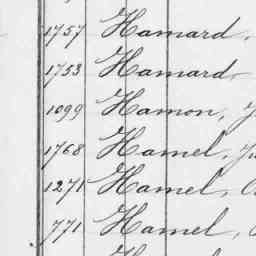 1757 Hamard,
1753 Hamard
1099 Hamon,
1768 Hamel,
1271 Hamel,
771 Hamel,